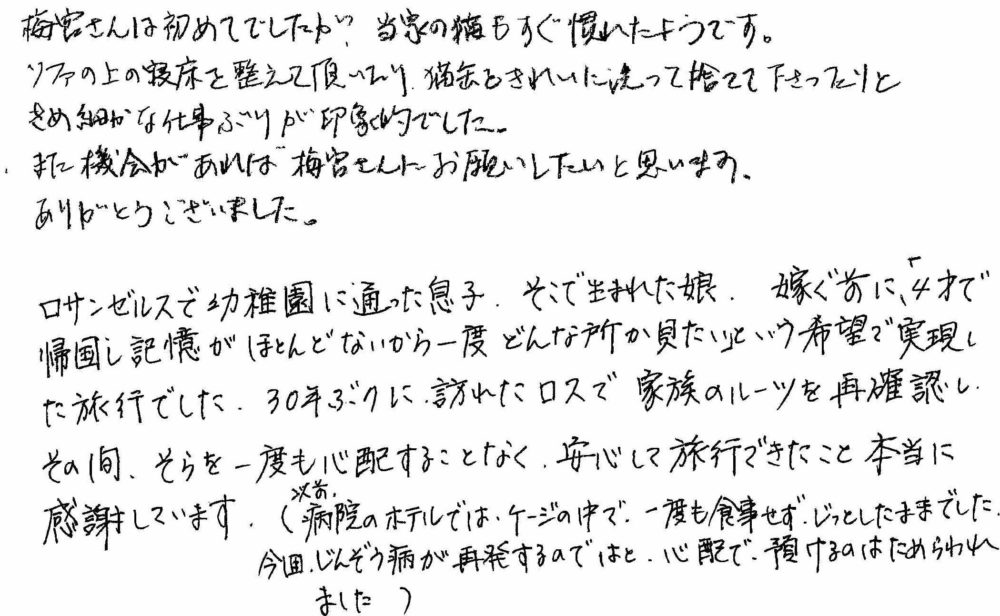 梅宮さんは初めてでしたが、当家の猫もすぐ慣れたようです。
ソファの上の寝床を整えて頂いたり、猫缶をきれいに洗って捨てて下さったりと
きめ細かな仕事ぶりが印象的でした。
また機会があれば梅宮さんにお願いしたいと思います。
ありがとうございました。
ロサンゼルスで幼稚園に通った息子、そこで生まれた娘、嫁ぐ前に、「4才で
帰国し記憶がほとんどないから一度どんな所か見たい」という希望で実現し
た旅行でした。30年ぶりに訪れたロスで家族のルーツを再確認し、
その間、そらを一度も心配することなく、安心して旅行できたこと本当に
感謝しています。(以前、病院のホテルでは、ケージの中で、一度も食事せず、じっとしたままでした。
今回、じんぞう病が再発するのではと、心配で、預けるのはためらわれ
ました)